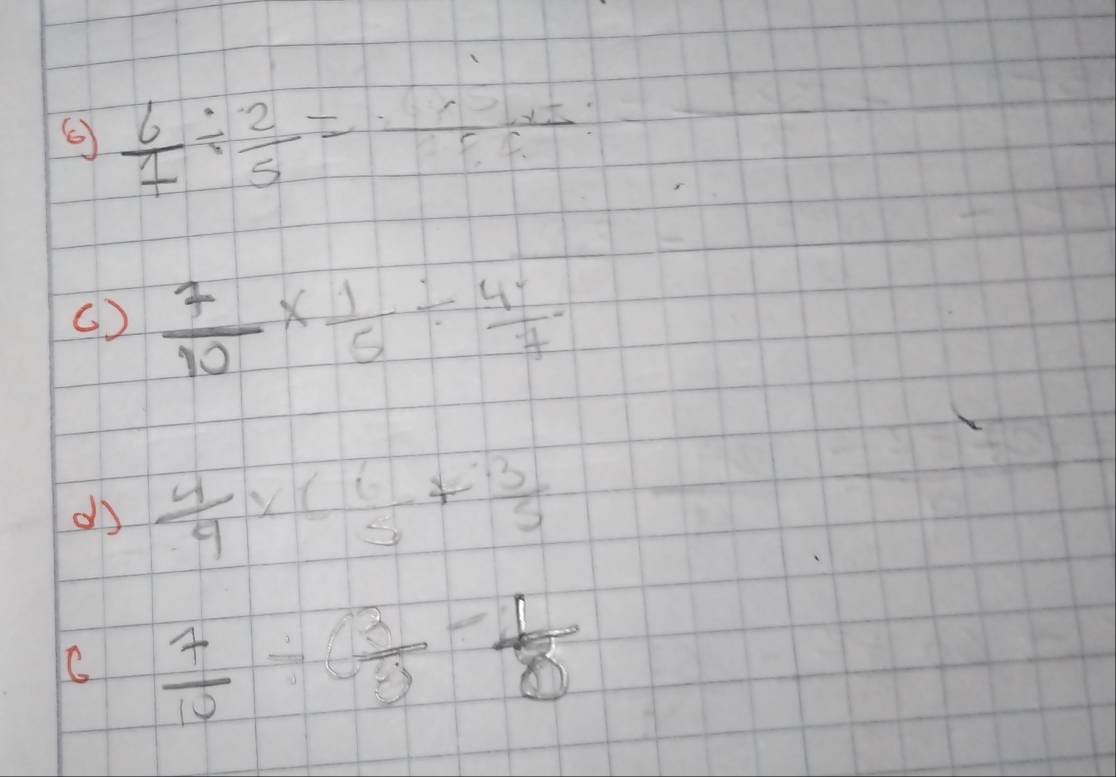 6) 6/7 ÷ 2/5 =
c) 7/10 × 1/5 ÷ 4/7
d) 4/9 × ( 6/5 + 3/5
7/10 ÷ ( 3/8 - 1/8